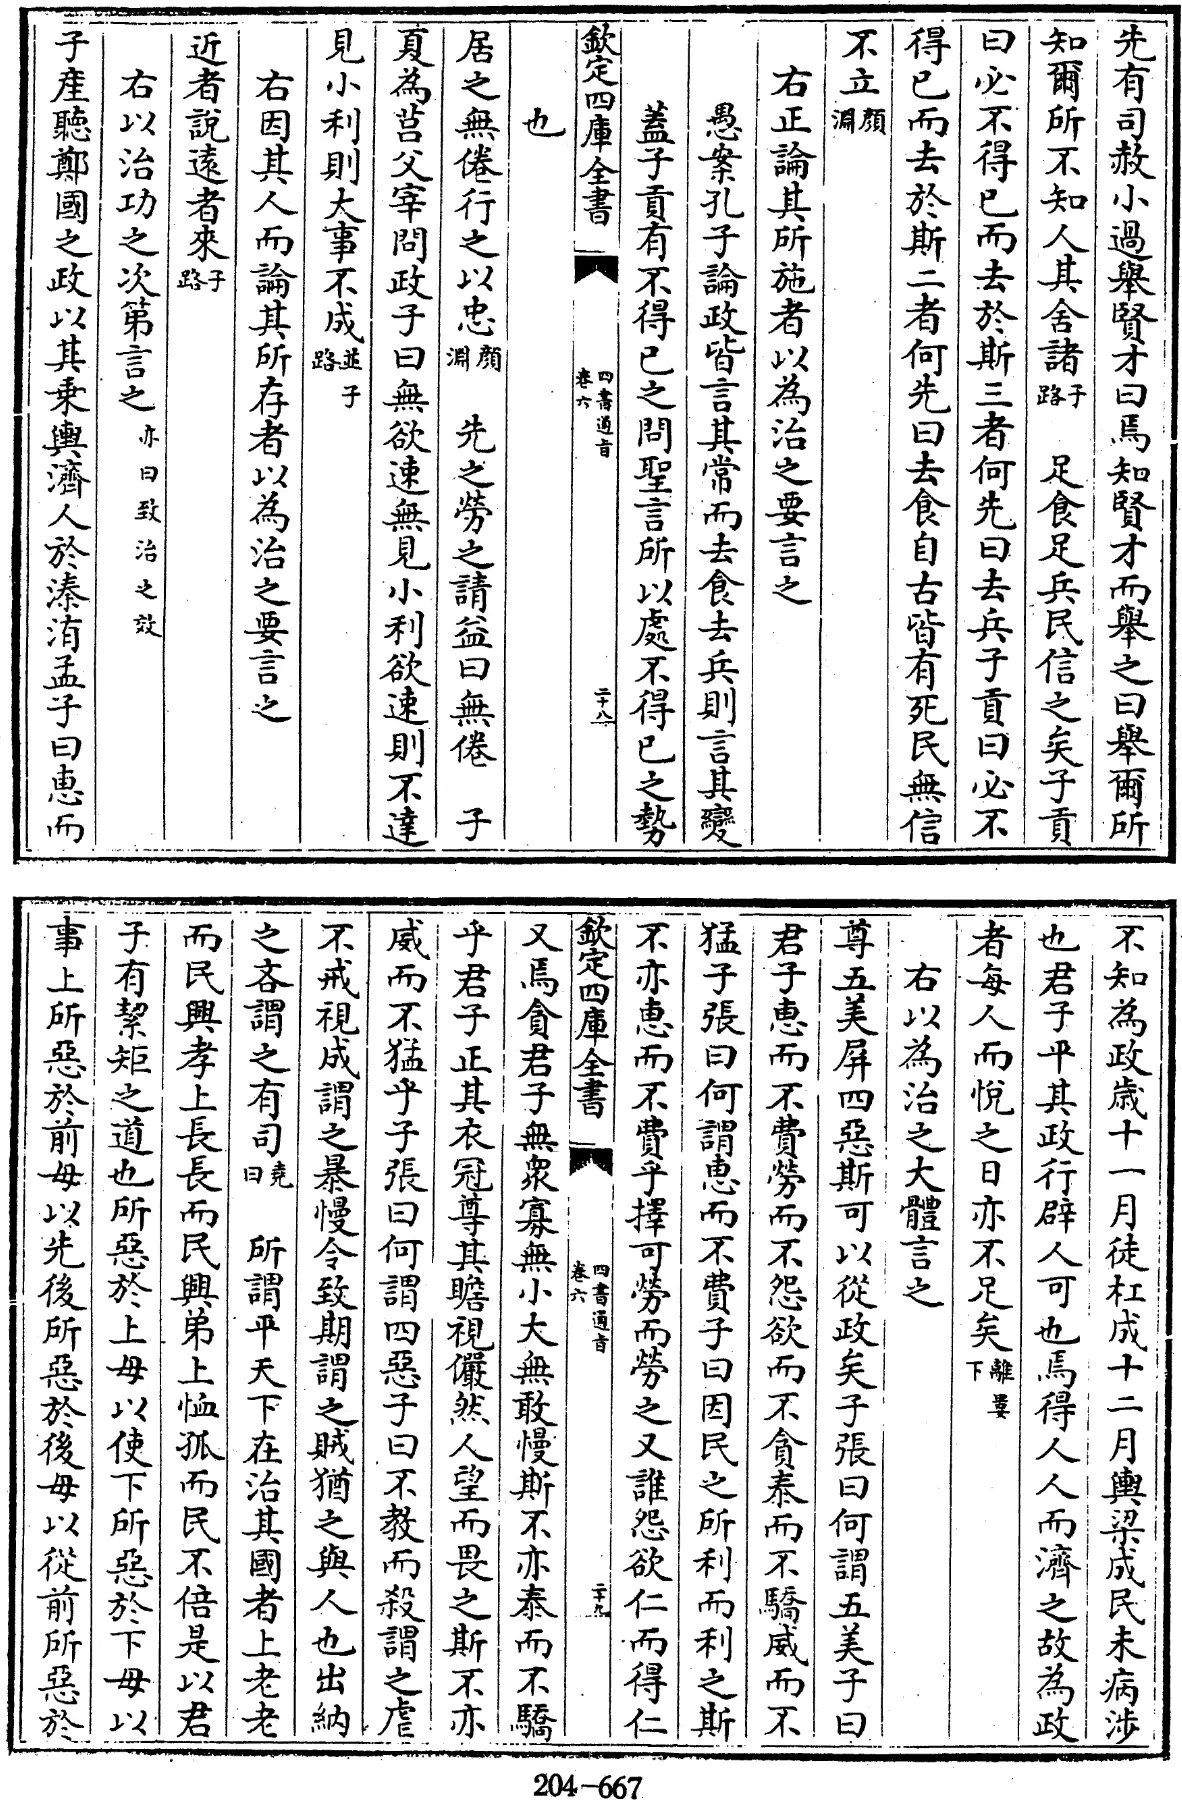 先有司赦小過舉賢才曰焉知賢才而舉之曰舉爾所
知爾所不知人其舍諸子路　足食足兵民信之矣子貢
曰必不得已而去於斯三者何先曰去兵子貢曰必不
得已而去於斯二者何先曰去食自古皆有死民無信
不立顏淵
右正論其所施者以為治之要言之
愚案孔子論政皆言其常而去食去兵則言其變
蓋子貢有不得已之問聖言所以處不得已之勢
欽定四庫全書　四書通旨卷六　二十八
也
居之無倦行之以忠顏淵　先之勞之請益曰無倦　子
夏為莒父宰問政子曰無欲速無見小利欲速則不達
見小利則大事不成並子路
右因其人而論其所存者以為治之要言之
近者說遠者來子路
右以治功之次第言之亦曰致治之效
子產聽鄭國之政以其乘輿濟人於溱洧孟子曰惠而
不知為政歲十一月徒杠成十二月輿梁成民未病涉
也君子平其政行辟人可也焉得人人而濟之故為政
者每人而悅之日亦不足矣離婁下
右以為治之大體言之
尊五美屏四惡斯可以從政矣子張曰何謂五美子曰
君子惠而不費勞而不怨欲而不貪泰而不驕威而不
猛子張曰何謂惠而不費子曰因民之所利而利之斯
不亦惠而不費乎擇可勞而勞之又誰怨欲仁而得仁
欽定四庫全書　四書通旨卷六　二十九
又焉貪君子無眾寡無小大無敢慢斯不亦泰而不驕
乎君子正其衣冠尊其瞻視儼然人望而畏之斯不亦
威而不猛乎子張曰何謂四惡子曰不教而殺謂之虐
不戒視成謂之暴慢令致期謂之賊猶之與人也出納
之吝謂之有司堯曰　所謂平天下在治其國者上老老
而民興孝上長長而民興弟上恤孤而民不倍是以君
子有絜矩之道也所惡於上毋以使下所惡於下毋以
事上所惡於前毋以先後所惡於後毋以從前所惡於
204-667